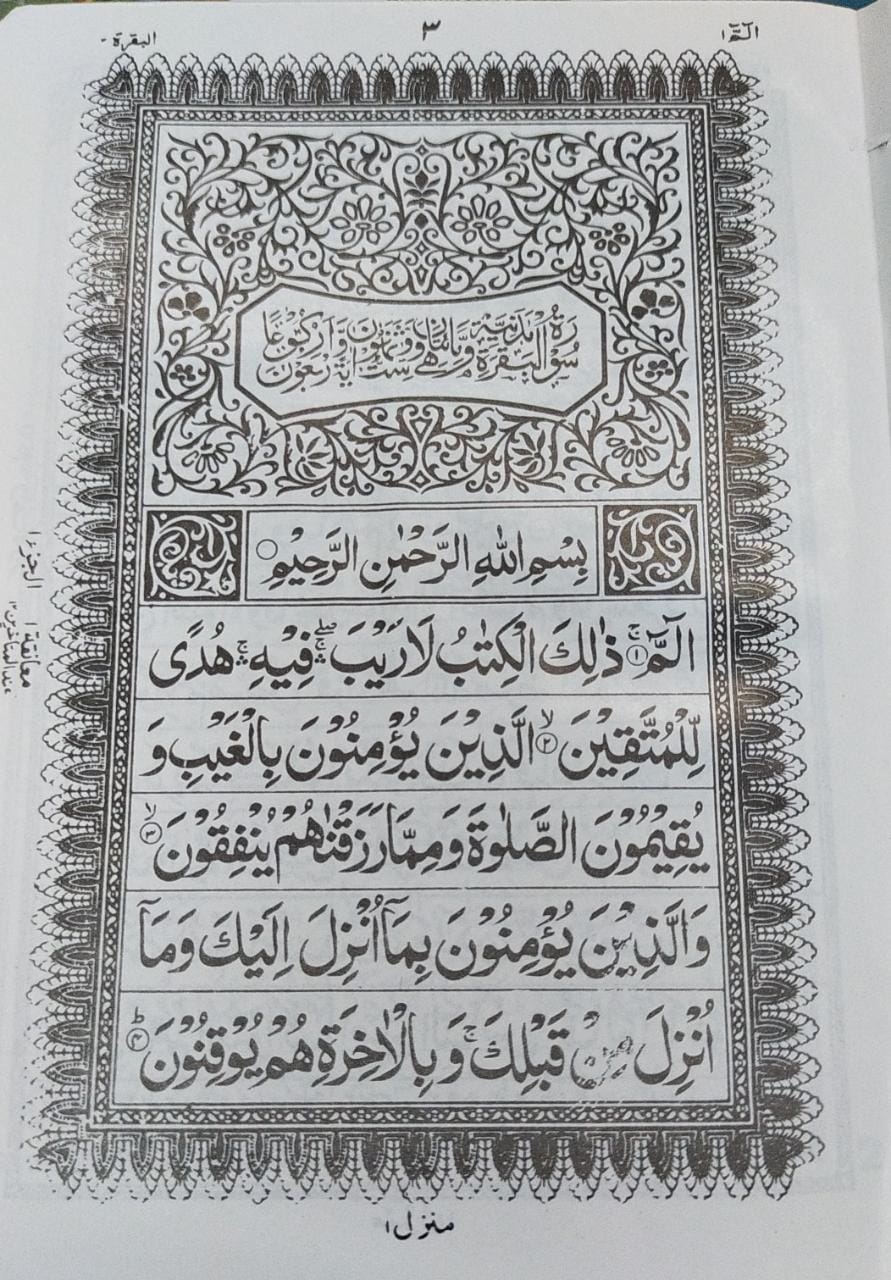 الٓمّٓ ۱
۳
البقرة ۲
سُوْرَةُ الْبَقَرَةِ مَدَنِيَّةٌ وَّهِيَ مِائَتَانِ وَسِتٌّ وَّثَمٰنُوْنَ اٰيَةً وَّاَرْبَعُوْنَ رُكُوْعًا
بِسْمِ اللّٰهِ الرَّحْمٰنِ الرَّحِيْمِ ○
الٓمّٓ ۚ﴿۱﴾ ذٰلِكَ الْكِتٰبُ لَا رَيْبَ ۛۖ فِيْهِ ۛۚ هُدًى
لِّلْمُتَّقِيْنَ ۙ﴿۲﴾ الَّذِيْنَ يُؤْمِنُوْنَ بِالْغَيْبِ وَ
يُقِيْمُوْنَ الصَّلٰوةَ وَمِمَّا رَزَقْنٰهُمْ يُنْفِقُوْنَ ۙ﴿۳﴾
وَالَّذِيْنَ يُؤْمِنُوْنَ بِمَآ اُنْزِلَ اِلَيْكَ وَمَآ
اُنْزِلَ مِنْ قَبْلِكَ ۚ وَبِالْاٰخِرَةِ هُمْ يُوْقِنُوْنَ ؕ﴿۴﴾
الجزء ۱
معانقة ۱
عند المتاخرين ۱۲
منزل ۱